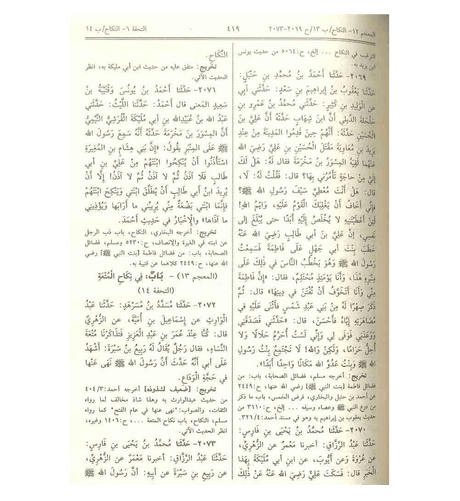 المعجم ١٢- النكاح/ب ١٣/ح ٢٠٦٩-٢٠٧٣
٤١٩
التحفة ٦- النكاح/ب ١٤
الترغيب في النكاح ... إلخ، ح:٥٠٦٤ من حديث يونس
ابن يزيد به.
٢٠٦٩- حَدَّثَنا أَحْمَدُ بنُ مُحمَّدِ بنِ حَنْبَلٍ:
حَدَّثَنا يَعْقُوبُ بنُ إبراهِيمَ بنِ سَعْدٍ: حَدَّثَني أبي
عن الْوَلِيدِ بنِ كَثِيرٍ: حَدَّثَني مُحمَّدُ بنُ عَمْرِو بنِ
حَلْحَلَةَ الدِّيلِيُّ أنَّ ابنَ شِهَابٍ حَدَّثَهُ أنَّ عَلِيَّ بنَ
الْحُسَيْنِ حَدَّثَهُ: أنَّهُمْ حِينَ قَدِمُوا المَدِينَةَ مِنْ عِنْدِ
يَزِيدَ بنِ مُعَاوِيَةَ مَقْتَلَ الْحُسَيْنِ بنِ عَلِيٍّ رَضِيَ الله
عَنْهُمَا لَقِيَهُ المِسْوَرُ بنُ مَخْرَمَةَ فقال لَهُ: هَلْ لَكَ
إلَيَّ مِنْ حَاجَةٍ تَأْمُرُنِي بِهَا؟ قال: فَقُلْتُ لَهُ: لَا،
قال: هَلْ أَنْتَ مُعْطِيَّ سَيْفَ رَسُولِ الله ﷺ؟
فإنِّي أَخَافُ أَنْ يَغْلِبَكَ الْقَوْمُ عَلَيْهِ، وَايْمُ الله! لَئِنْ
أَعْطَيْتَنِيهِ لا يُخْلَصُ إلَيْهِ أَبَدًا حتى يُبْلَغَ إلى
نَفْسِي، إنَّ عَلِيَّ بنَ أبي طَالِبٍ رَضِيَ الله عَنْهُ
خَطَبَ بِنْتَ أبي جَهْلٍ عَلَى فَاطِمَةَ
فَسَمِعْتُ رَسُولَ الله ﷺ وَهُوَ يَخْطُبُ النَّاسَ في ذَلِكَ عَلَى
مِنْبَرِهِ هَذَا، وَأنَا يَوْمَئِذٍ مُحْتَلِمٌ، فقال: «إنَّ فَاطِمَةَ
مِنِّي وَأنَا أَتَخَوَّفُ أَنْ تُفْتَنَ في دِينِهَا» قال: ثُمَّ
ذَكَرَ صِهْرًا لَهُ مِنْ بَنِي عَبْدِ شَمْسٍ فأَثْنَى عَلَيْهِ في
مُصَاهَرَتِهِ إيَّاهُ فأَحْسَنَ، قال: «حَدَّثَنِي فَصَدَقَنِي
وَوَعَدَنِي فَوَفَّى لِي وَإنِّي لَسْتُ أُحَرِّمُ حَلَالًا وَلَا
أُحِلُّ حَرَامًا، وَلَكِنْ وَالله! لا تَجْتَمِعُ بِنْتُ رَسُولِ
الله وَبِنْتُ عَدُوِّ الله مَكَانًا وَاحِدًا أَبَدًا».
تخريج: أخرجه مسلم، فضائل الصحابة، باب: من
فضائل فاطمة [بنت النبي ﷺ] رضي الله عنها، ح:٢٤٤٩
عن أحمد بن حنبل والبخاري، فرض الخمس، باب ما ذكر
من درع النبي ﷺ وعصاه وسيفه ... إلخ، ح:٣١١٠ من
حديث يعقوب بن إبراهيم به وهو في مسند أحمد:٤/٣٢٦.
٢٠٧٠- حَدَّثَنا مُحمَّدُ بنُ يَحْيَى بنِ فَارِسٍ:
حَدَّثَنا عَبْدُ الرَّزَّاقِ: أخبرنا مَعْمَرٌ عن الزُّهْرِيِّ،
عن عُرْوَةَ وَعن أَيُّوبَ، عن ابنِ أبي مُلَيْكَةَ بِهَذَا
الْخَبَرِ قال: فَسَكَتَ عَلِيٌّ رَضِيَ الله عَنْهُ عَنْ ذَلِكَ
النِّكَاحِ.
تخريج: متفق عليه من حديث ابن أبي مليكة به، انظر
الحديث الآتي.
٢٠٧١- حَدَّثَنا أَحْمَدُ بنُ يُونُسَ وَقُتَيْبَةُ بنُ
سَعِيدٍ المَعنى قال أَحْمَدُ: حَدَّثَنا اللَّيْثُ: حَدَّثَني
عَبْدُ الله بنُ عُبَيْدِ الله بنِ أبي مُلَيْكَةَ الْقُرَشِيُّ التَّيْمِيُّ
أنَّ المِسْوَرَ بنَ مَخْرَمَةَ حَدَّثَهُ أنَّهُ سَمِعَ رَسُولَ الله
ﷺ عَلَى المِنْبَرِ يَقُولُ: «إنَّ بَنِي هِشَامِ بنِ المُغِيرَةِ
اسْتَأْذَنُوا أَنْ يُنْكِحُوا ابْنَتَهُمْ مِنْ عَلِيِّ بنِ أبي
طَالِبٍ فَلَا آذَنُ ثُمَّ لا آذَنُ ثُمَّ لا آذَنُ إلَّا أَنْ
يُرِيدَ ابنُ أبي طَالِبٍ أَنْ يُطَلِّقَ ابْنَتِي وَيَنْكِحَ ابْنَتَهُمْ
فَإنَّمَا ابْنَتِي بَضْعَةٌ مِنِّي يُرِيبُنِي مَا أَرَابَهَا وَيُؤْذِينِي
مَا آذَاهَا» وَالإخْبَارُ في حَدِيثِ أَحْمَدَ.
تخريج: أخرجه البخاري، النكاح، باب ذب الرجل
عن ابنته في الغيرة والإنصاف، ح:٥٢٣٠، ومسلم، فضائل
الصحابة، باب: من فضائل فاطمة [بنت النبي ﷺ] رضي
الله عنها، ح:٢٤٤٩ كلاهما عن قتيبة به.
(المعجم ١٣) - بَابٌ: فِي نِكَاحِ الْمُتْعَةِ
(التحفة ١٤)
٢٠٧٢- حَدَّثَنا مُسَدَّدُ بنُ مُسَرْهَدٍ: حَدَّثَنا عَبْدُ
الْوَارِثِ عن إسْمَاعِيلَ بنِ أُمَيَّةَ، عن الزُّهْرِيِّ
قال: كُنَّا عِنْدَ عُمَرَ بنِ عَبْدِ الْعَزِيزِ فَتَذَاكَرْنَا مُتْعَةَ
النِّسَاءِ، فقال رَجُلٌ يُقَالُ لَهُ رَبِيعُ بنُ سَبْرَةَ: أَشْهَدُ
عَلَى أبي أنَّهُ حَدَّثَ أنَّ رَسُولَ الله ﷺ نَهَى عَنْهَا
في حَجَّةِ الْوَدَاعِ.
تخريج: [ضعيف لشذوذه] أخرجه أحمد:٣/٤٠٤
من حديث عبدالوارث به وهذا شاذ مخالف لما رواه
الثقات، والصواب: "نهى عنها في عام الفتح" كما رواه
مسلم، النكاح، باب نكاح المتعة ...، ح:١٤٠٦ وغيره،
انظر الحديث الآتي.
٢٠٧٣- حَدَّثَنا مُحمَّدُ بنُ يَحْيَى بنِ فَارِسٍ:
حَدَّثَنا عَبْدُ الرَّزَّاقِ: أخبرنا مَعْمَرٌ عن الزُّهْرِيِّ،
عن رَبِيعِ بنِ سَبْرَةَ عن أبِيهِ: أنَّ رَسُولَ الله ﷺ